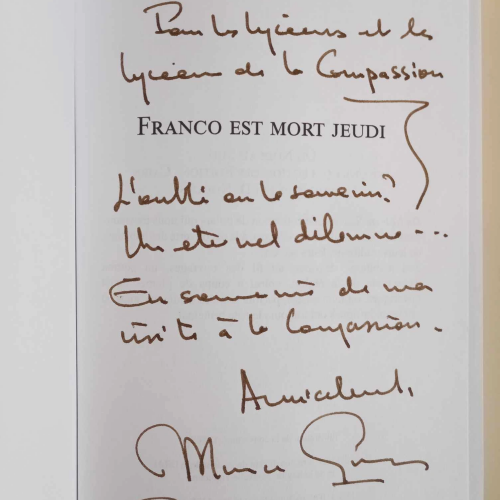 Pour les lycéens et les
lycéens de la Compassion
FRANCO EST MORT JEUDI
L'oubli ou le souvenir?
Un eternel dilemme...
En souvenir de ma
visite à la Compassion.
Amicalement,